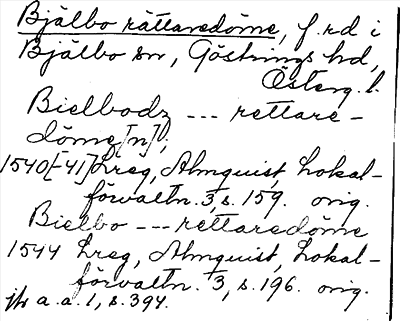 Bjälbo rättaredöme, f.rd i
Bjälbo sn, Göstrings hd,
Österg. l.
Bielbodz --- rettare-
döme[n],
1540[-41] Lreg, Almquist, Lokal-
förvaltn. 3, s. 159. orig.
Bielbo --- rettaredöme
1544 Lreg, Almquist, Lokal-
förvaltn. 3, s. 196. orig.
jfr a.a. 1, s. 394.